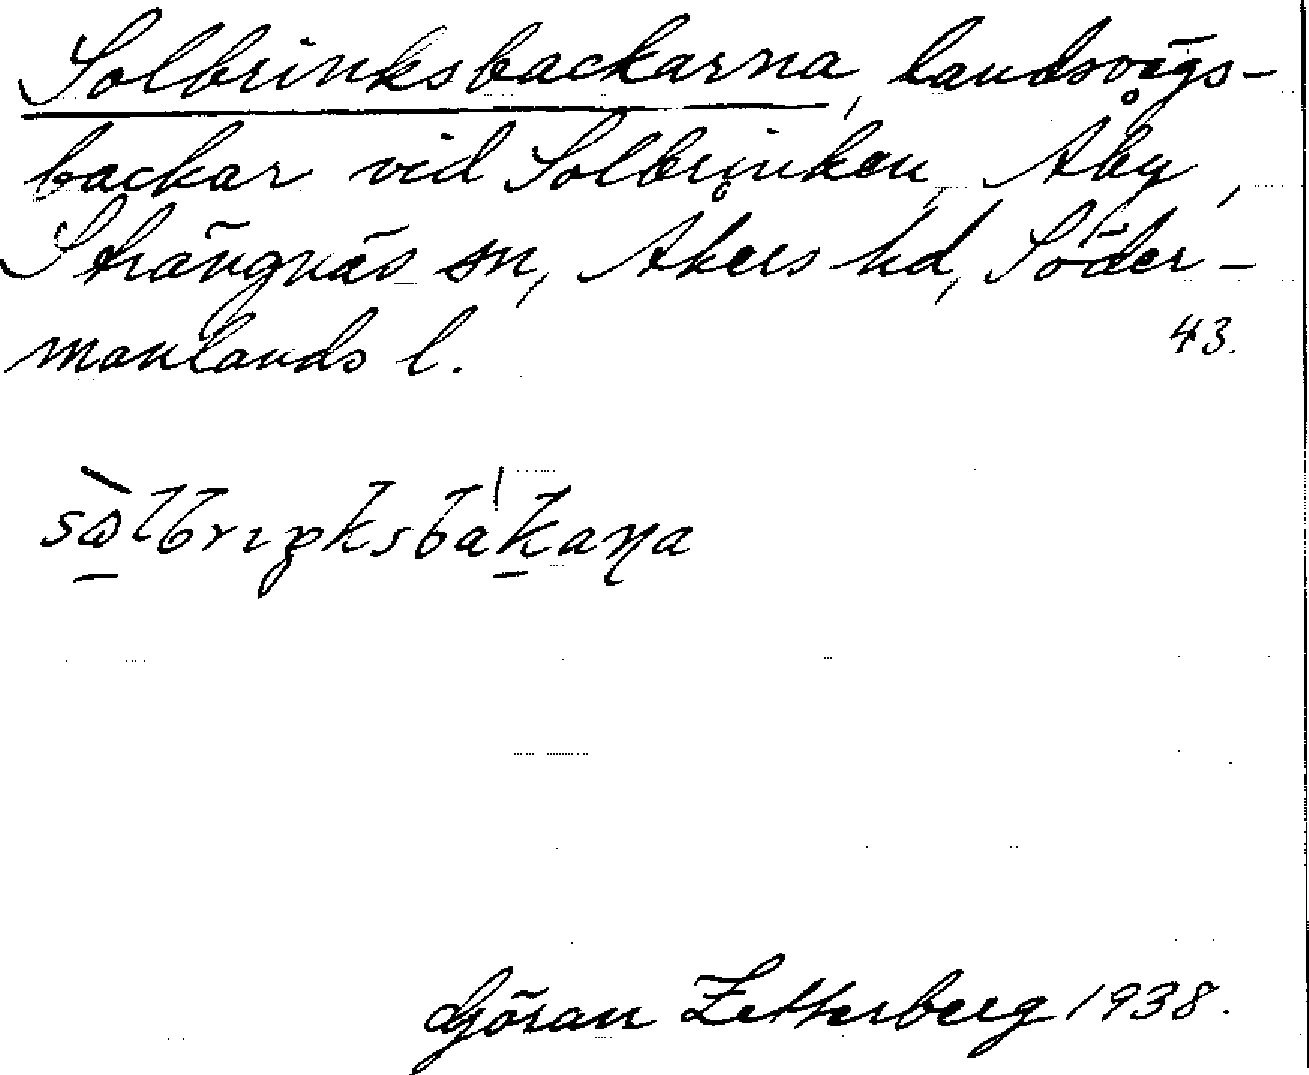 Solbrinksbackarna, landsvägs-
backar vid Solbrinken, Åby,
Strängnäs sn, Åkers hd, Söder-
manlands l.
43.
Göran Zetterberg 1938.